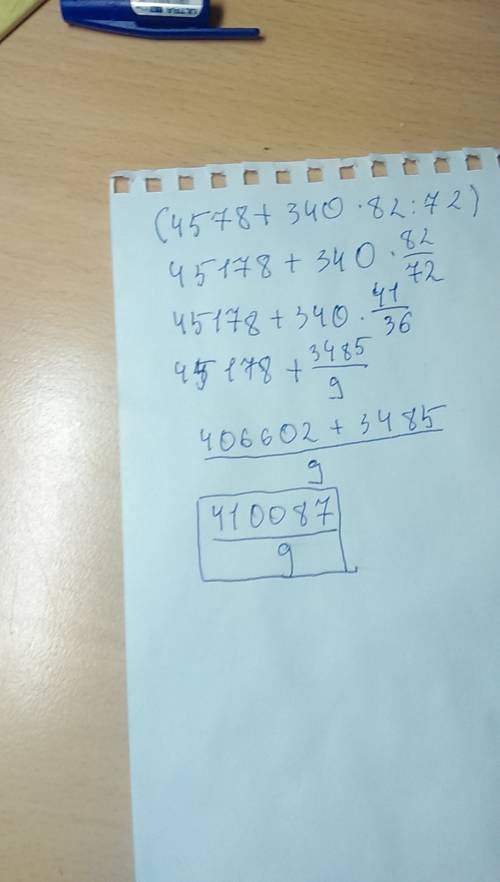 ULTRA
(4578 + 340 · 82 : 72)
45178 + 340 · 82/72
45178 + 340 · 41/36
45178 + 3485/9
406602 + 3485
9
410087
9